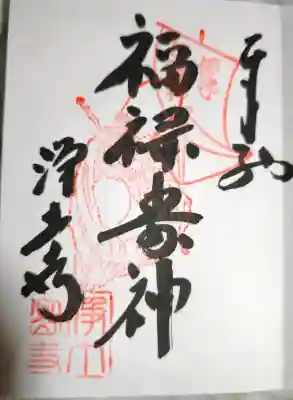 奉拝
福禄寿神
浄土寺